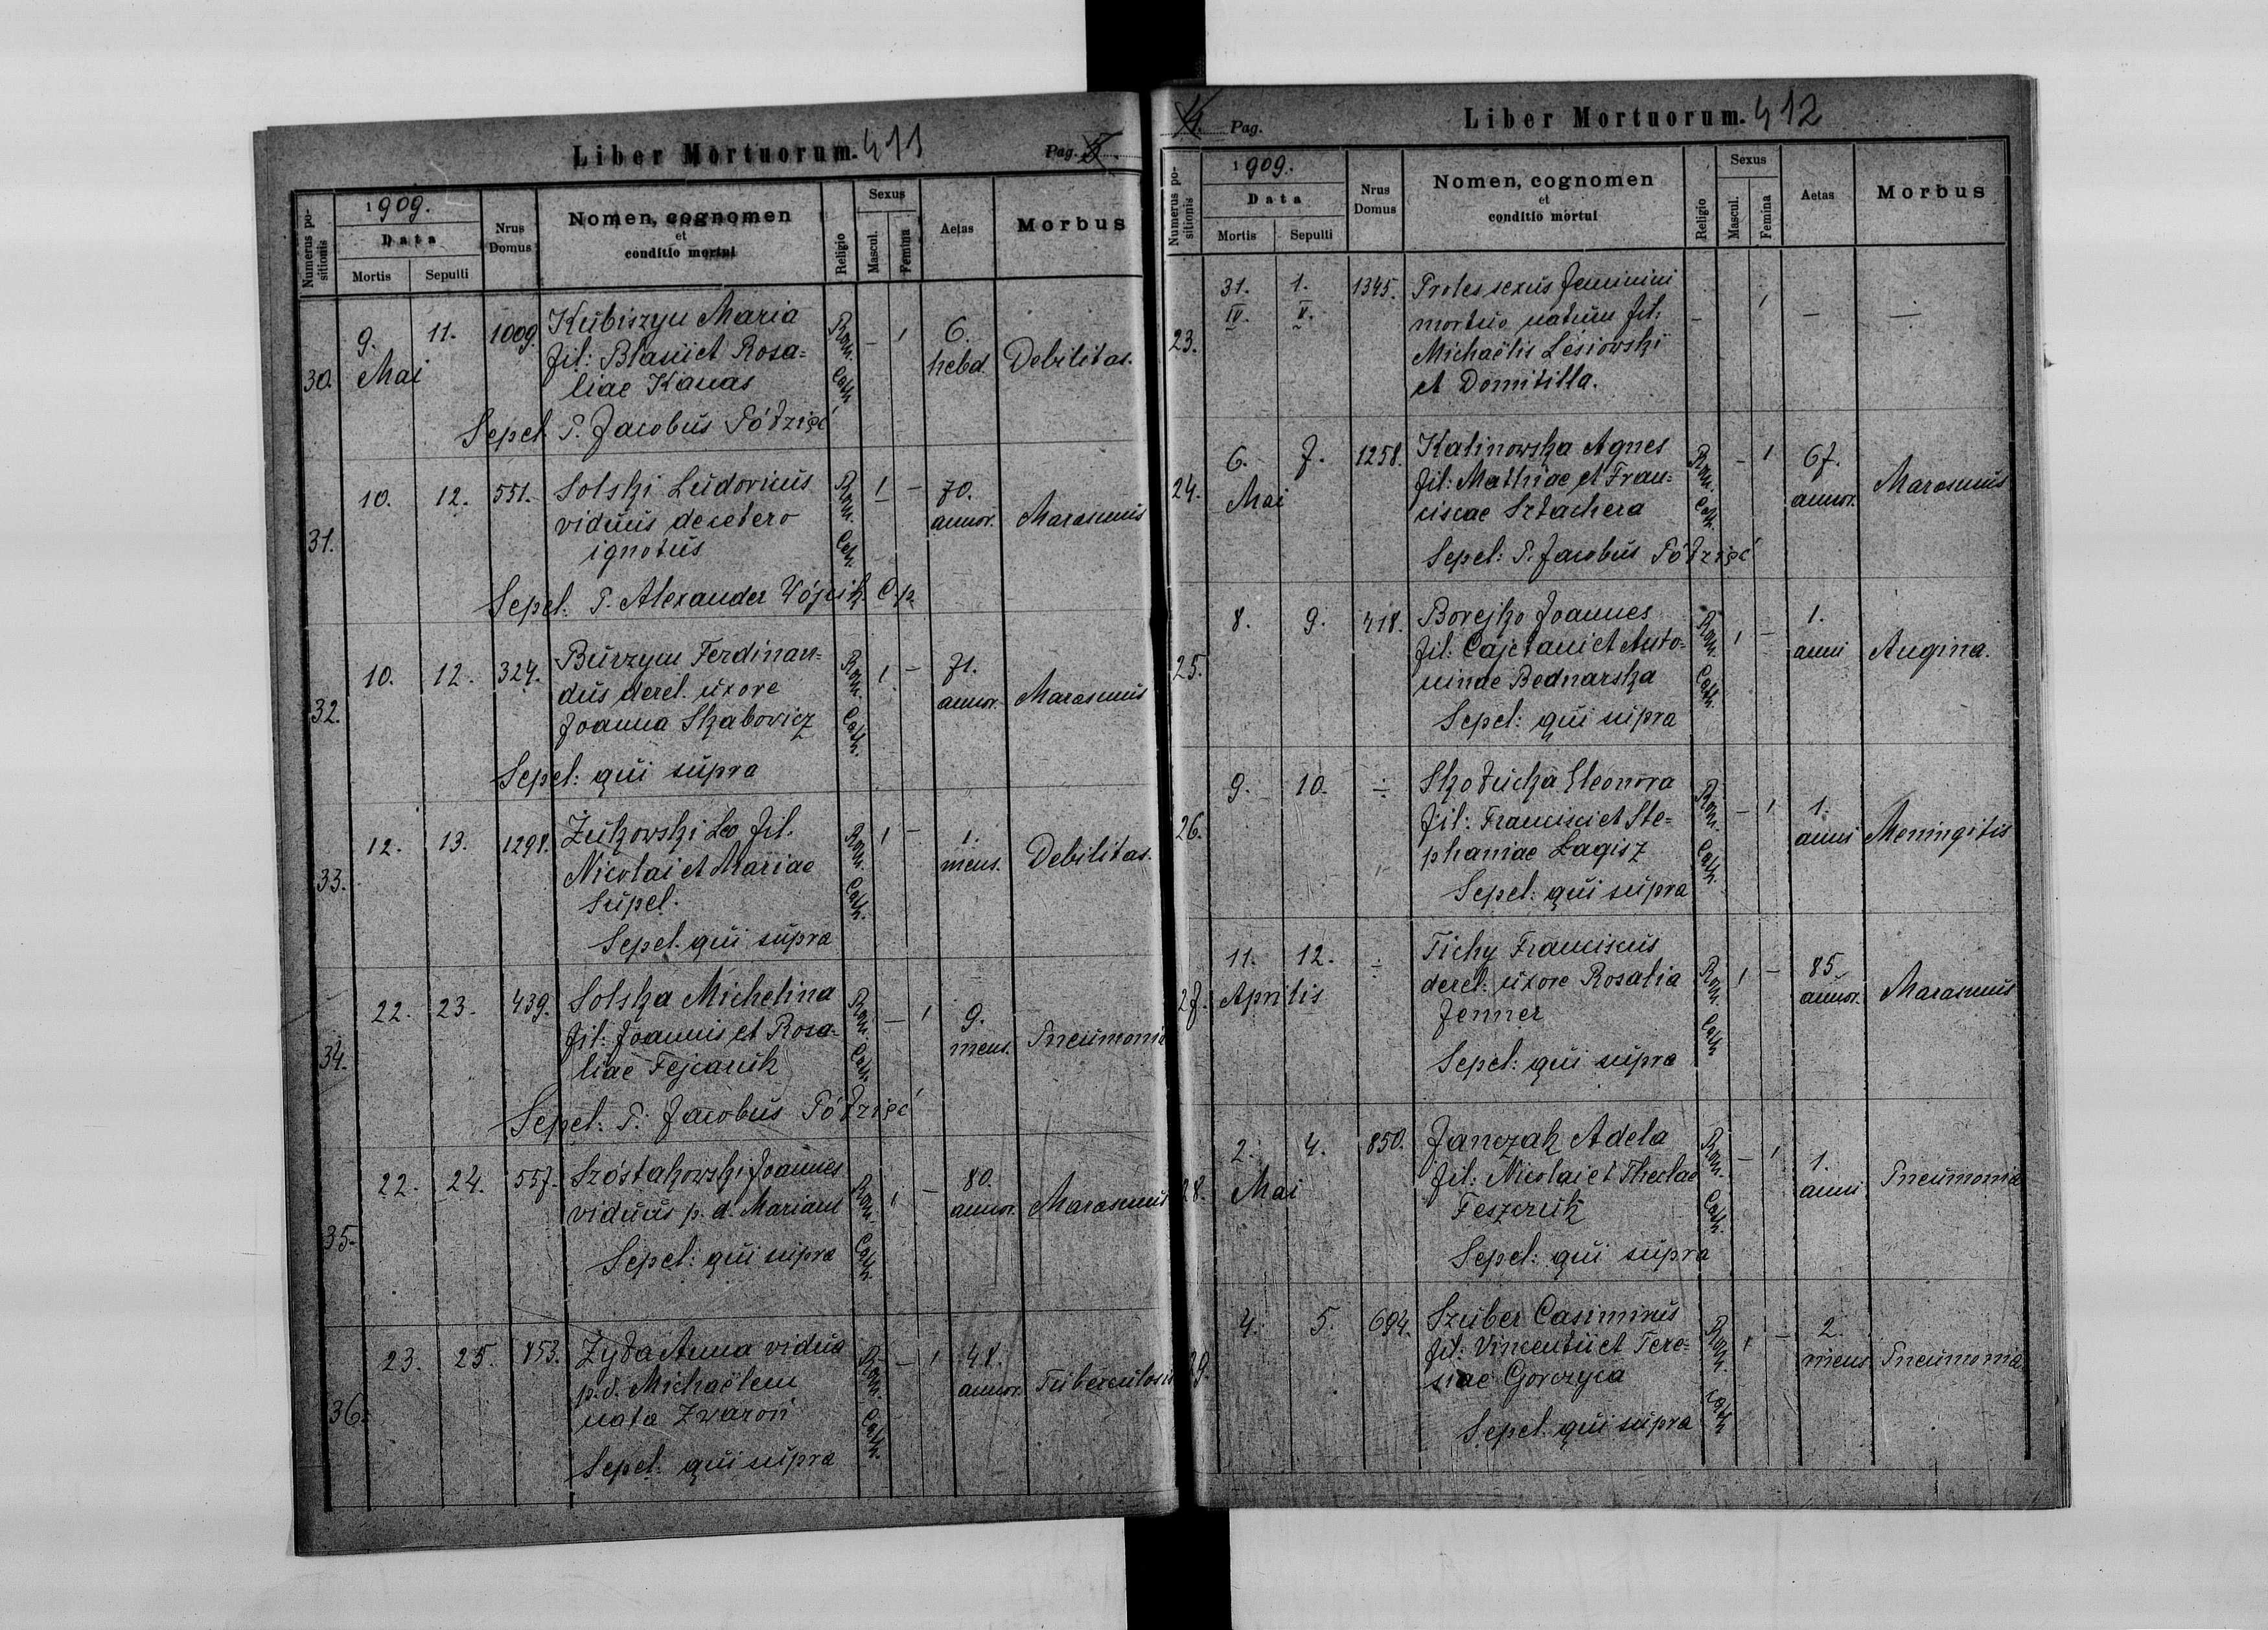 Liber Mortuorum. 411
Pag. 5
Numerus positionis
1909.
Data
Mortis
Sepulti
Nrus Domus
Nomen, cognomen
et
conditio mortui
Religio
Sexus
Mascul.
Femina
Aetas
Morbus
30. 9. Mai 11. 1009. Kubiszyn Maria Rom. Cath. - 1 6. hebd. Debilitas.
fil: Blasii et Rosa=
liae Kanas
Sepel. P. Jacobus Półzięć
31. 10. 12. 551. Solski Ludovicus Rom. Cath. 1 - 70. annor. Marasmus
viduus de cetero
ignotus
Sepel. P. Alexander Wójcik Cp.
32. 10. 12. 324. Burzyn Ferdinan= Rom. Cath. 1 - 71. annor. Marasmus
dus derel. uxore
Joanna Skabowicz
Sepel: qui supra
33. 12. 13. 1298. Żukowski Leo fil. Rom. Cath. 1 - 1. mens. Debilitas.
Nicolai et Mariae
Supel.
Sepel. qui supra
34. 22. 23. 439. Solska Michelina Rom. Cath. - 1 9. mens. Pneumonia
fil: Joannis et Rosa-
liae Fejcaruk
Sepel: P. Jacobus Półzięć
35. 22. 24. 557. Szóstakowski Joannes Rom. Cath. 1 - 80. annor. Marasmus
viduus p. d. Mariam
Sepel: qui supra
36. 23. 25. 853. Zyła Anna vidua Rom. Cath. - 1 48. annor. Tuberculosis
p. d. Michaëlem
nata Zwaroń
Sepel: qui supra
4. Pag.
Liber Mortuorum. 412
Numerus positionis
1909.
Data
Mortis
Sepulti
Nrus Domus
Nomen, cognomen
et
conditio mortui
Religio
Sexus
Mascul.
Femina
Aetas
Morbus
23. 31. IV. 1. V. 1345. Proles sexus feminini - 1 - -
mortuo natum fil:
Michaëlis Lesiowski
et Domitilla.
24. 6. Mai 7. 1258. Kalinowska Agnes Rom. Cath. - 1 67. annor. Marasmus
fil: Mathiae et Fran=
ciscae Sztachera
Sepel: P. Jacobus Półzięć
25. 8. 9. 418. Borejko Joannes Rom. Cath. 1 - 1. anni Angina.
fil: Cajetani et Anto-
ninae Bednarska
Sepel: qui supra
26. 9. 10. ÷ Skołucka Eleonora Rom. Cath. - 1 1. anni Meningitis
fil: Francisci et Ste=
phaniae Łagisz
Sepel: qui supra
27. 11. Aprilis 12. ÷ Tichy Franciscus Rom. Cath. 1 - 85 annor. Marasmus
derel: uxore Rosalia
Jenner
Sepel: qui supra
28. 2. Mai 4. 850. Janczak Adela Rom. Cath. - 1 1. anni Pneumonia
fil: Nicolai et Theclae
Feszczuk
Sepel: qui supra
29. 4. 5. 694. Szuber Casimirus Rom. Cath. 1 - 2. mens Pneumonia
fil: Vincentii et Tere=
siae Gorczyca
Sepel. qui supra